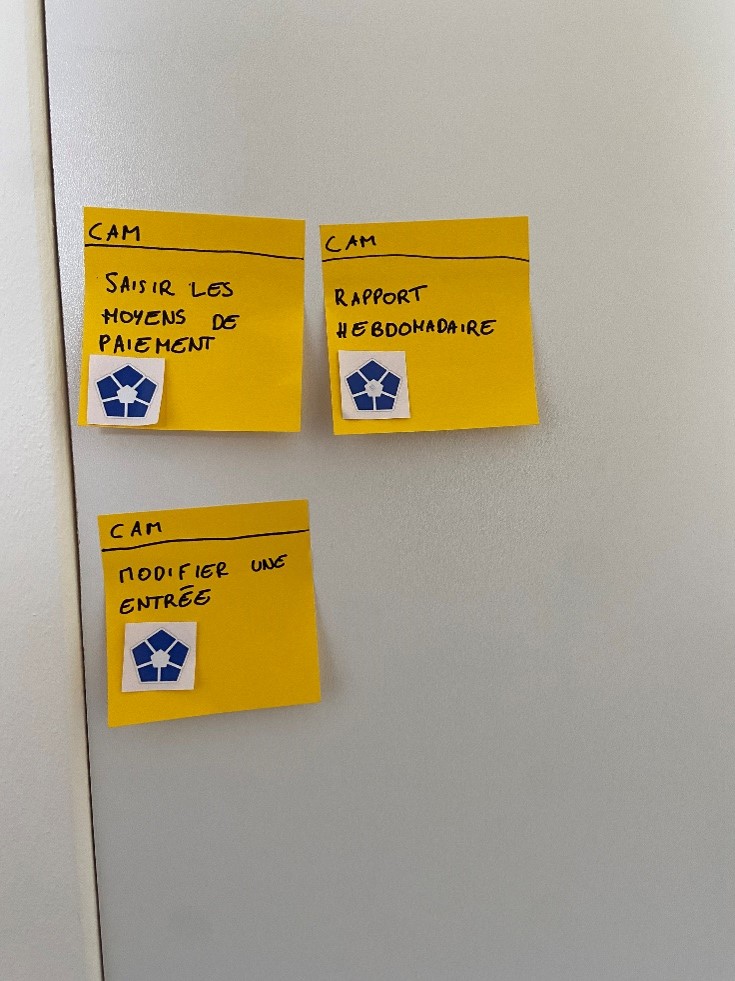 CAM
SAISIR LES
MOYENS DE
PAIEMENT
CAM
RAPPORT
HEBDOMADAIRE
CAM
MODIFIER UNE
ENTRÉE